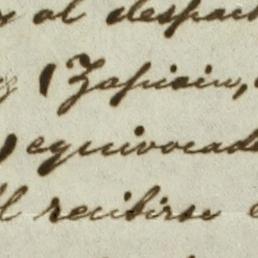 al despach
(Zapiain,
equivocad
l recibirse